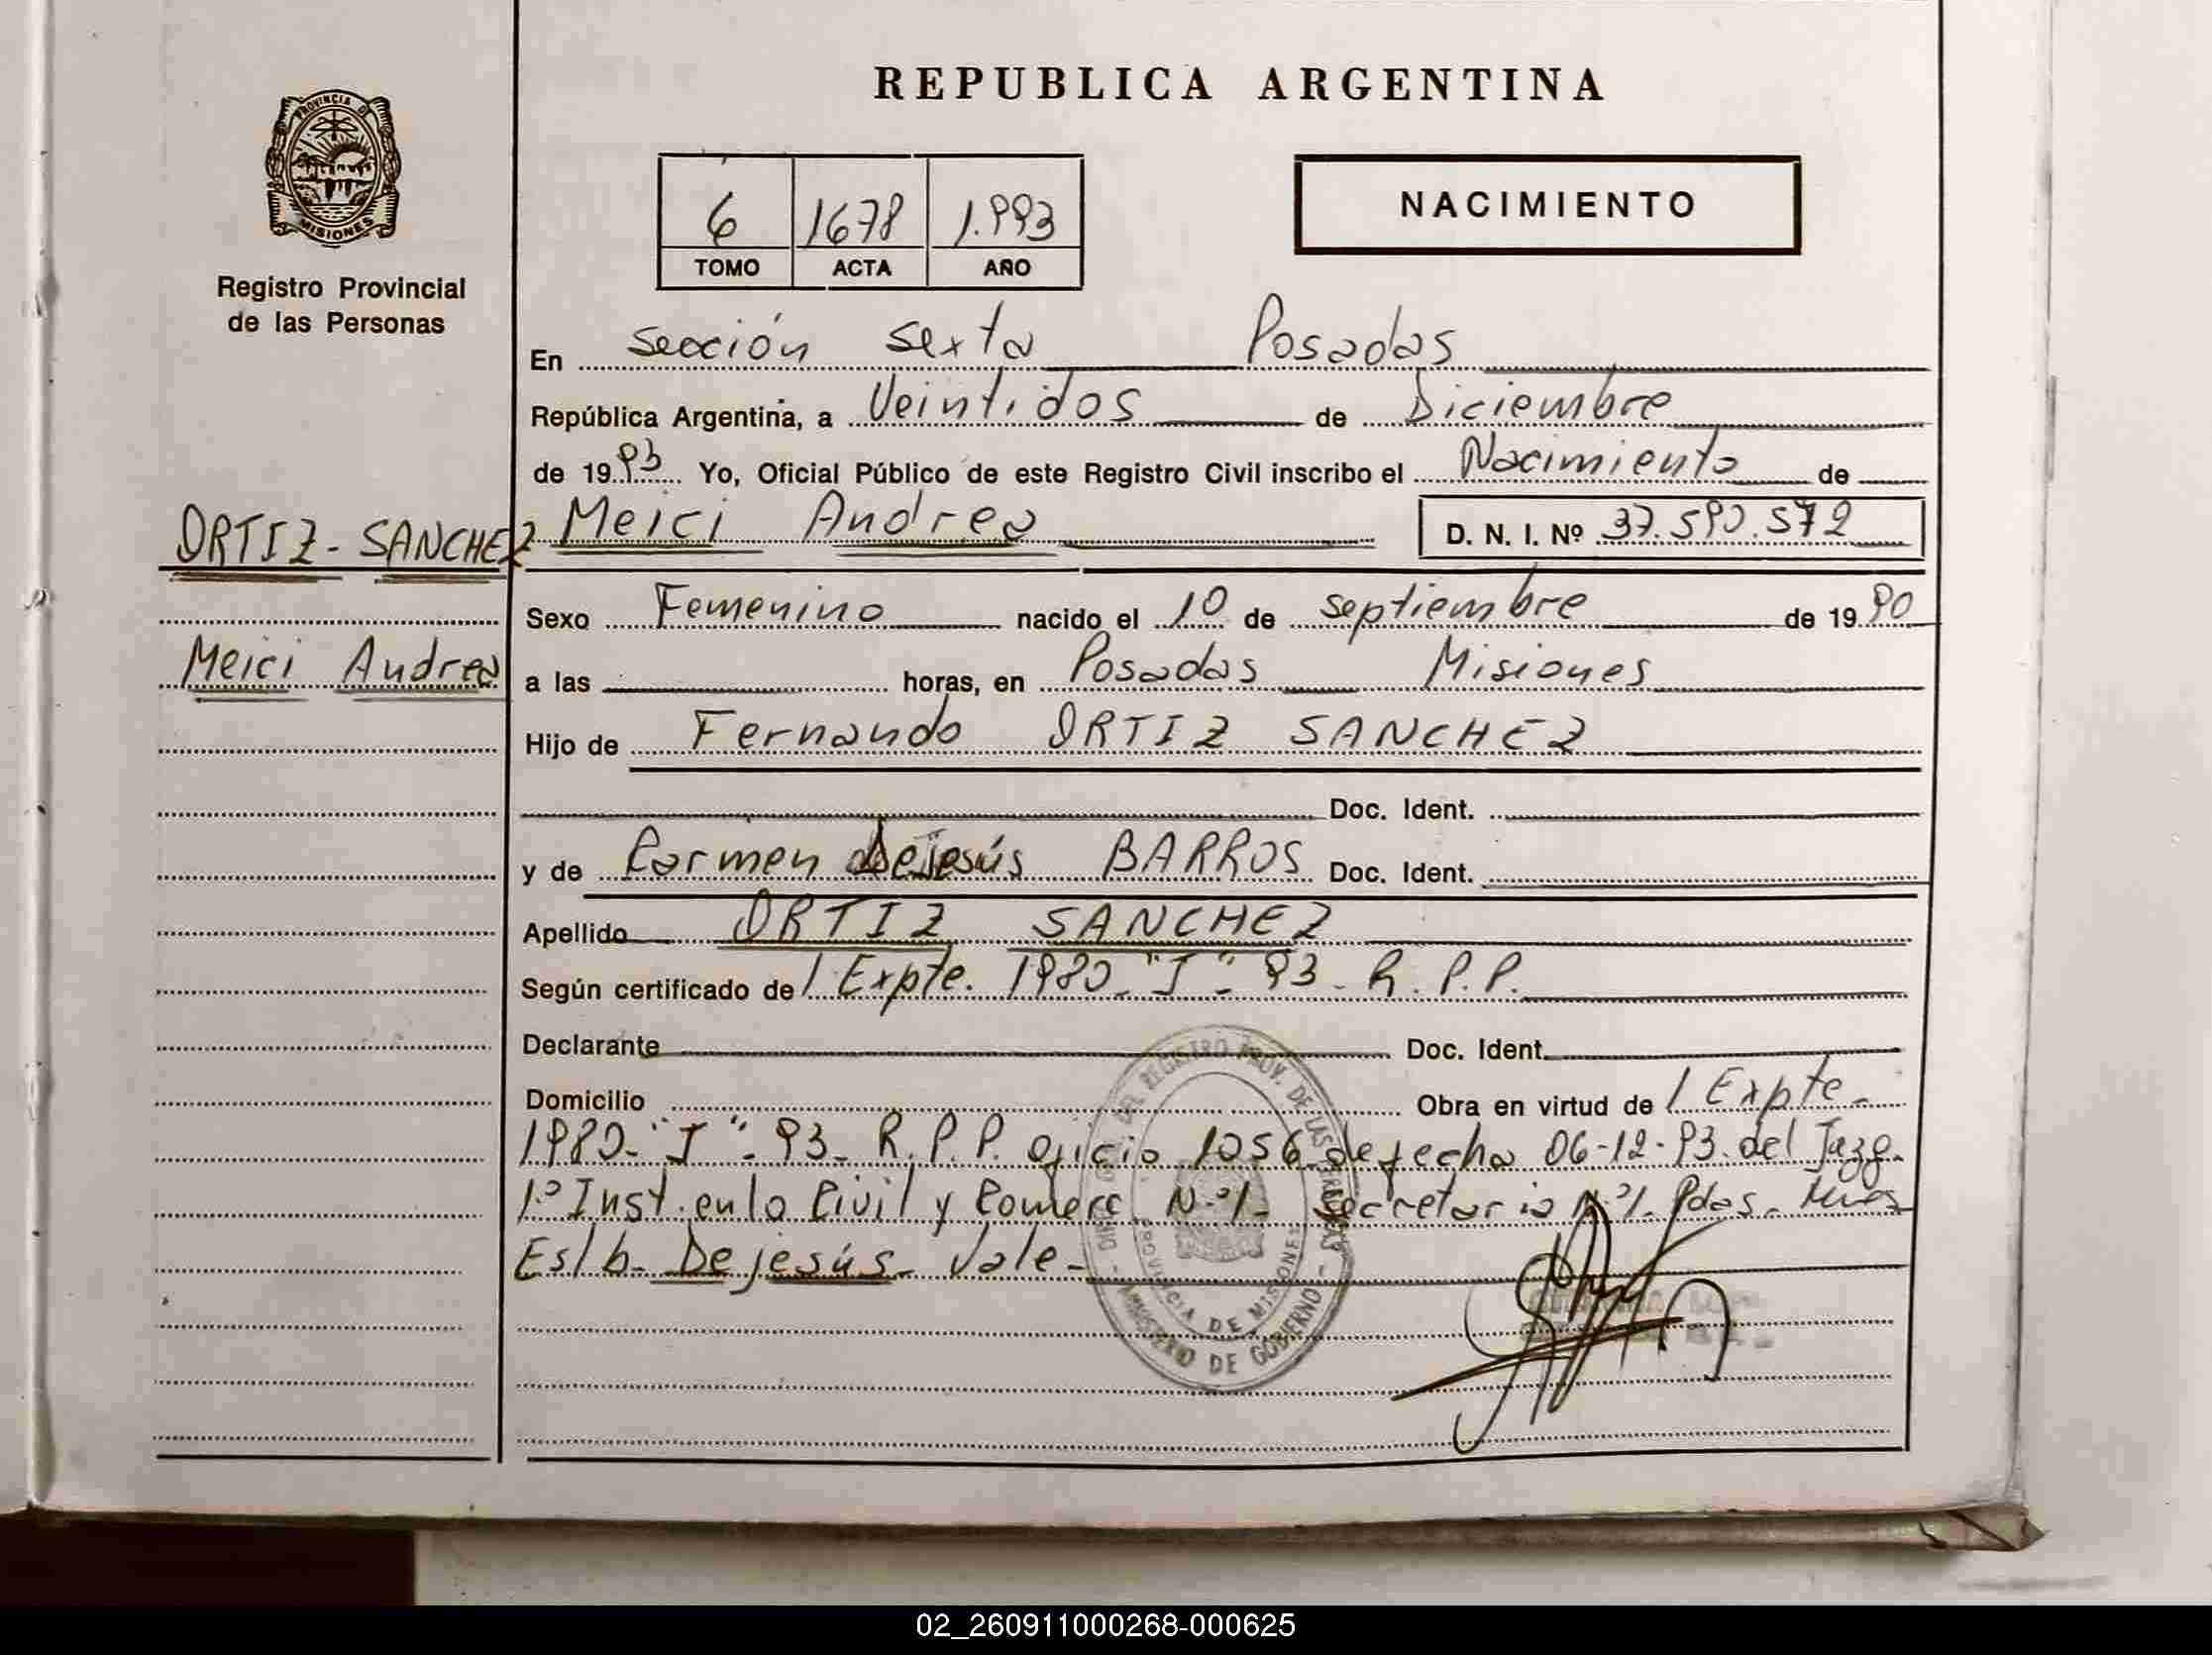 REPUBLICA ARGENTINA
PROVINCIA DE
MISIONES
Registro Provincial
de las Personas
6 1678 1.993
TOMO ACTA AÑO
NACIMIENTO
En sección sexta Posadas
República Argentina, a Veintidos de Diciembre
de 1993 Yo, Oficial Público de este Registro Civil inscribo el Nacimiento de
ORTIZ-SANCHEZ Meici Andrea D. N. I. Nº 37.590.572
Sexo Femenino nacido el 10 de septiembre de 1990
Meici Andrea
a las horas, en Posadas Misiones
Hijo de Fernando ORTIZ SANCHEZ
Doc. Ident.
y de Carmen Dejesús BARROS Doc. Ident.
Apellido ORTIZ SANCHEZ
Según certificado de / Expte. 1980-"I"-93-R.P.P.
Declarante Doc. Ident.
Domicilio Obra en virtud de / Expte-
1980-"I"-93-R.P.P. oficio 1056 de fecha 06-12-93 del Juzg.
1º Inst. en lo Civil y Comerc. N.º 1- Secretaria N.º 1. Pdas-
Es/b. Dejesús- Vale-
DEL REGISTRO PROV. DE LAS PERSONAS
PROVINCIA DE MISIONES
MINISTERIO DE GOBIERNO
02_260911000268-000625